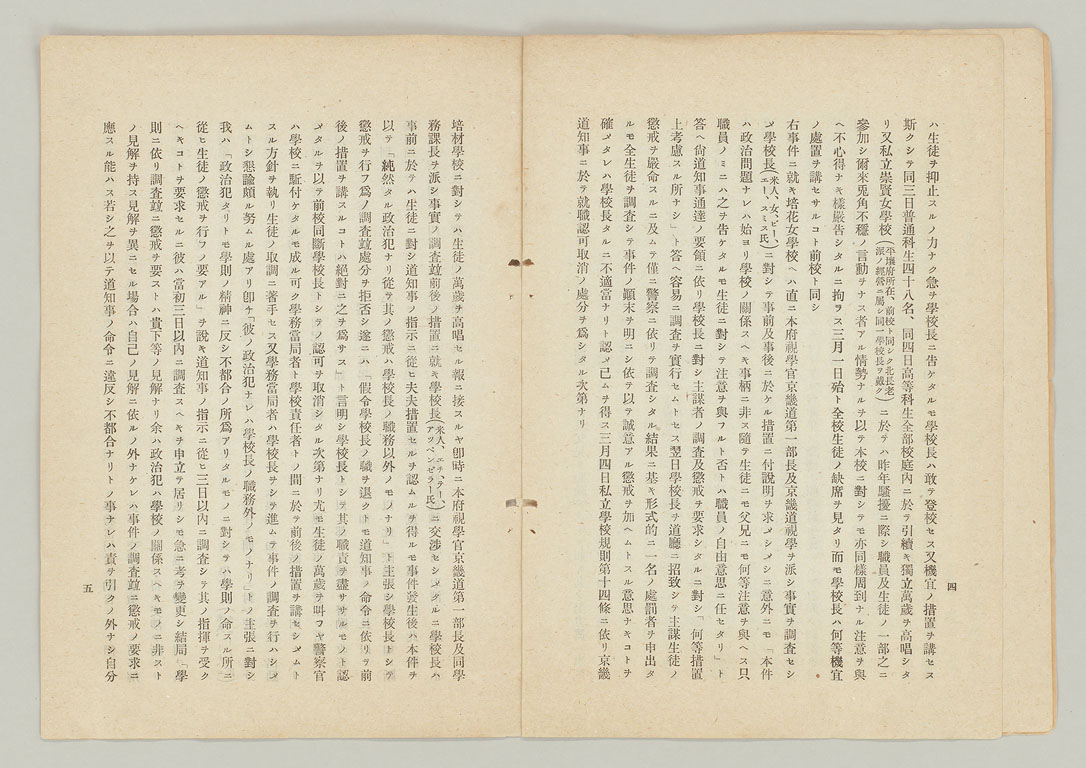 ハ生徒ヲ抑止スルノ力ナク急ヲ學校長ニ吿ケタルモ學校長ハ敢テ登校セス又機宜ノ措置ヲ講セス
斯クシテ同三日普通科生四十八名、同四日高等科生全部校庭內ニ於テ引續キ獨立萬歲ヲ高唱シタ
リ又私立崇賢女學校(平壤府所在、前校ト同シク北長老派ノ經營ニ屬シ同一學校長ヲ戴ク)ニ於テハ昨年騷擾ニ際シ職員及生徒ノ一部之ニ
參加シ爾來兎角不穩ノ言動ヲナス者アル情勢ナルヲ以テ本校ニ對シテモ亦同樣周到ナル注意ヲ與
ヘ不心得ナキ樣嚴吿シタルニ拘ラス三月一日殆ト全校生徒ノ缺席ヲ見タリ而モ學校長ハ何等機宜
ノ處置ヲ講セサルコト前校ト同シ
右事件ニ就キ培花女學校ヘハ直ニ本府視學官京畿道第一部長及京畿道視學ヲ派シ事實ヲ調査セシ
メ學校長(米人、女、ビー、エー、スミス氏)ニ對シテ事前及事後ニ於ケル措置ニ付說明ヲ求メシメシニ意外ニモ「本件
ハ政治問題ナレハ始ヨリ學校ノ關係スヘキ事柄ニ非ス隨テ生徒ニモ父兄ニモ何等注意ヲ與ヘス只
職員ノミニハ之ヲ吿ケタルモ生徒ニ對シテ注意ヲ與フルト否トハ職員ノ自由意思ニ任セタリ」ト
答ヘ尙道知事通達ノ要領ニ依リ學校長ニ對シ主謀者ノ調査及懲戒ヲ要求シタルニ對シ「何等措置
上考慮スル所ナシ」ト答ヘ容易ニ調査ヲ實行セムトセス翌日學校長ヲ道廳ニ招致シテ主謀生徒ノ
懲戒ヲ嚴命スルニ及ムテ僅ニ警察ニ依リテ調査シタル結果ニ基キ形式的ニ一名ノ處罰者ヲ申出タ
ルモ全生徒ヲ調査シテ事件ノ顚末ヲ明ニシ依テ以テ誠意アル懲戒ヲ加ヘムトスル意思ナキコトヲ
確メタレハ學校長タルニ不適當ナリト認メ已ムヲ得ス三月四日私立學校規則第十四條ニ依リ京畿
道知事ニ於テ就職認可取消ノ處分ヲ爲シタル次第ナリ
四
培材學校ニ對シテハ生徒ノ萬歲ヲ高唱セル報ニ接スルヤ卽時ニ本府視學官京畿道第一部長及同學
務課長ヲ派シ事實ノ調査竝前後ノ措置ニ就キ學校長(米人、エチ、ヂー、アツペンゼラー氏)ニ交涉セシメタルニ學校長ハ
事前ニ於テハ生徒ニ對シ道知事ノ指示ニ從ヒ夫夫措置セルヲ認ムルヲ得ルモ事件發生後ハ本件ヲ
以テ「純然タル政治犯ナリ從テ其ノ懲戒ハ學校長ノ職務以外ノモノナリ」ト主張シ學校長トシテ
懲戒ヲ行フ爲ノ調査竝處分ヲ拒否シ遂ニハ「假令學校長ノ職ヲ退クトモ道知事ノ命令ニ依リテ前
後ノ措置ヲ講スルコトハ絕對ニ之ヲ爲サス」ト言明シ學校長トシテ其ノ職責ヲ盡ササルモノト認
メタルヲ以テ前校同斷學校長トシテノ認可ヲ取消シタル次第ナリ尤モ生徒ノ萬歲ヲ叫フヤ警察官
ハ學校ニ驅付ケタルモ成ル可ク學務當局者ト學校責任者トノ間ニ於テ前後ノ措置ヲ講セシメムト
スル方針ヲ執リ生徒ノ取調ニ著手セス又學務當局者ハ學校長ヲシテ進ムテ事件ノ調査ヲ行ハシメ
ムトシ懇諭頗ル努ムル處アリ卽チ「彼ノ政治犯ナレハ學校長ノ職務外ノモノナリ」トノ主張ニ對シ
我ハ「政治犯タリトモ學則ノ精神ニ反シ不都合ノ所爲アリタルモノニ對シテハ學則ノ命スル所ニ
從ヒ生徒ノ懲戒ヲ行フノ要アル」ヲ說キ道知事ノ指示ニ從ヒ三日以內ニ調査シテ其ノ指揮ヲ受ク
ヘキコトヲ要求セルニ彼ハ當初三日以內ニ調査スヘキヲ申立テ居リシモ急ニ考ヲ變更シ結局「學
則ニ依リ調査竝ニ懲戒ヲ要ストハ貴下等ノ見解ナリ余ハ政治犯ハ學校ノ關係スヘキモノニ非スト
ノ見解ヲ持ス見解ヲ異ニセル場合ハ自己ノ見解ニ依ルノ外ナケレハ事件ノ調査竝ニ懲戒ノ要求ニ
應スル能ハス若シ之ヲ以テ道知事ノ命令ニ違反シ不都合ナリトノ事ナレハ責ヲ引クノ外ナシ自分
五